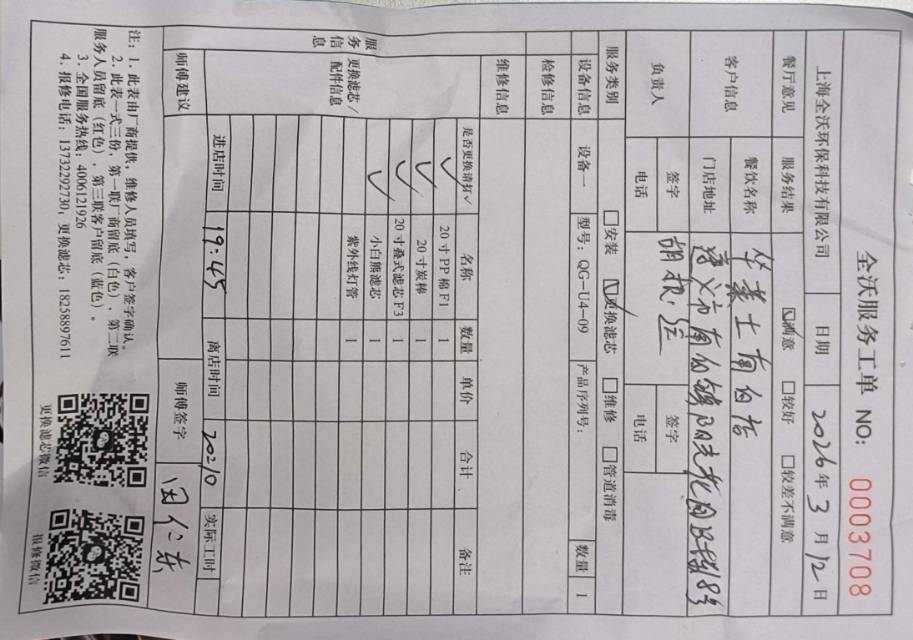 全沃服务工单 NO: 0003708
上海全沃环保科技有限公司 日期 2026年3月12日
餐厅意见 服务结果 ☑满意 □较好 □较差不满意
客户信息 餐饮名称 华莱士南白店
门店地址 遵义市南白镇阳光花园B栋18号
负责人 签字 签字
电话 电话
服务类别 □安装 ☑更换滤芯 □维修 □管道消毒
设备信息 设备一 型号: QG-U4-09 产品序列号: 数量 1
检修信息
维修信息
服务信息 更换滤芯/配件信息
是否更换请打✓ 名称 数量 单价 合计 备注
✓ 20寸PP棉F1 1
✓ 20寸炭棒 1
✓ 20寸叠式滤芯F3 1
✓ 小白熊滤芯 1
紫外线灯管 1
进店时间 19:45 离店时间 实际工时
师傅建议 师傅签字 田仁东
注: 1. 此表由厂商提供，维修人员填写，客户签字确认。
2. 此表一式三份，第一联厂商留底（白色），第二联
服务人员留底（红色），第三联客户留底（蓝色）。
3. 全国服务热线: 4006121926
4. 报修电话: 13732292730, 更换滤芯: 18258897611
更换滤芯微信 报修微信